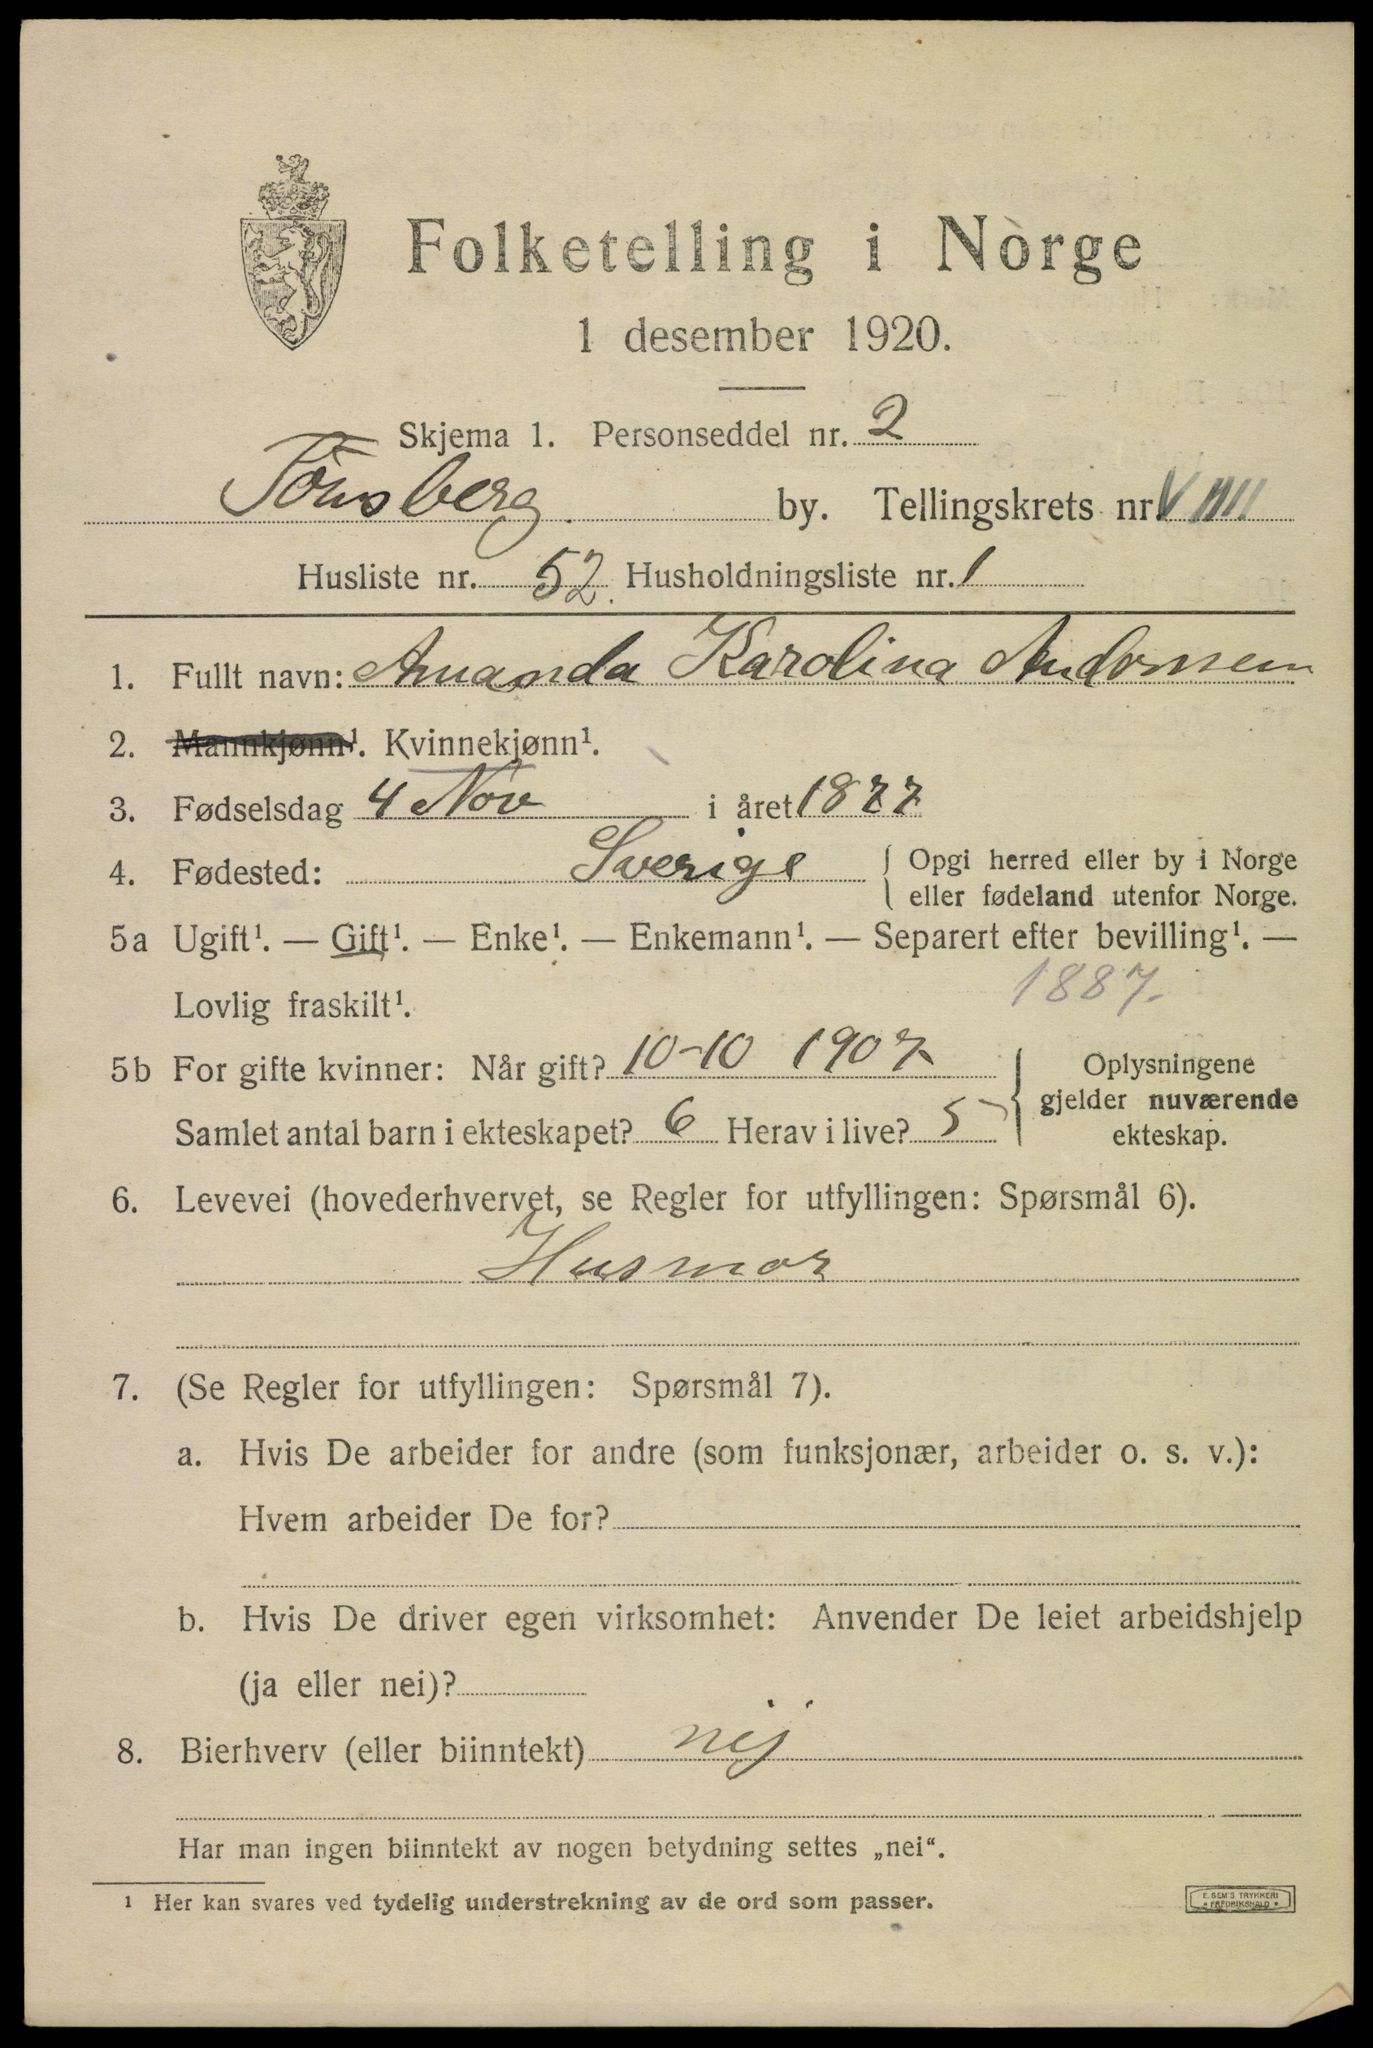 Folketelling i Norge
1 desember 1920.
Skjema 1. Personseddel nr. 2
Tönsberg. by. Tellingskrets nr.
Husliste nr. 52. Husholdningsliste nr. 1
1. Fullt navn: Amanda Karolina Andorssen
2. Mannkjønn¹. Kvinnekjønn¹.
3. Fødselsdag 4 Nov i året 1877
4. Fødested: Sverige { Opgi herred eller by i Norge
eller fødeland utenfor Norge.
5a Ugift¹. — Gift¹. — Enke¹. — Enkemann¹. — Separert efter bevilling¹. —
Lovlig fraskilt¹. 1887.
5b For gifte kvinner: Når gift? 10-10 1907. { Oplysningene
gjelder nuværende
Samlet antal barn i ekteskapet? 6 Herav i live? 5 ekteskap.
6. Levevei (hovederhvervet, se Regler for utfyllingen: Spørsmål 6).
Husmor
7. (Se Regler for utfyllingen: Spørsmål 7).
a. Hvis De arbeider for andre (som funksjonær, arbeider o. s. v.):
Hvem arbeider De for?
b. Hvis De driver egen virksomhet: Anvender De leiet arbeidshjelp
(ja eller nei)?
8. Bierhverv (eller biinntekt) nej
Har man ingen biinntekt av nogen betydning settes „nei“.
¹ Her kan svares ved tydelig understrekning av de ord som passer.
E. SEM'S TRYKKERI
* FREDRIKSHALD *